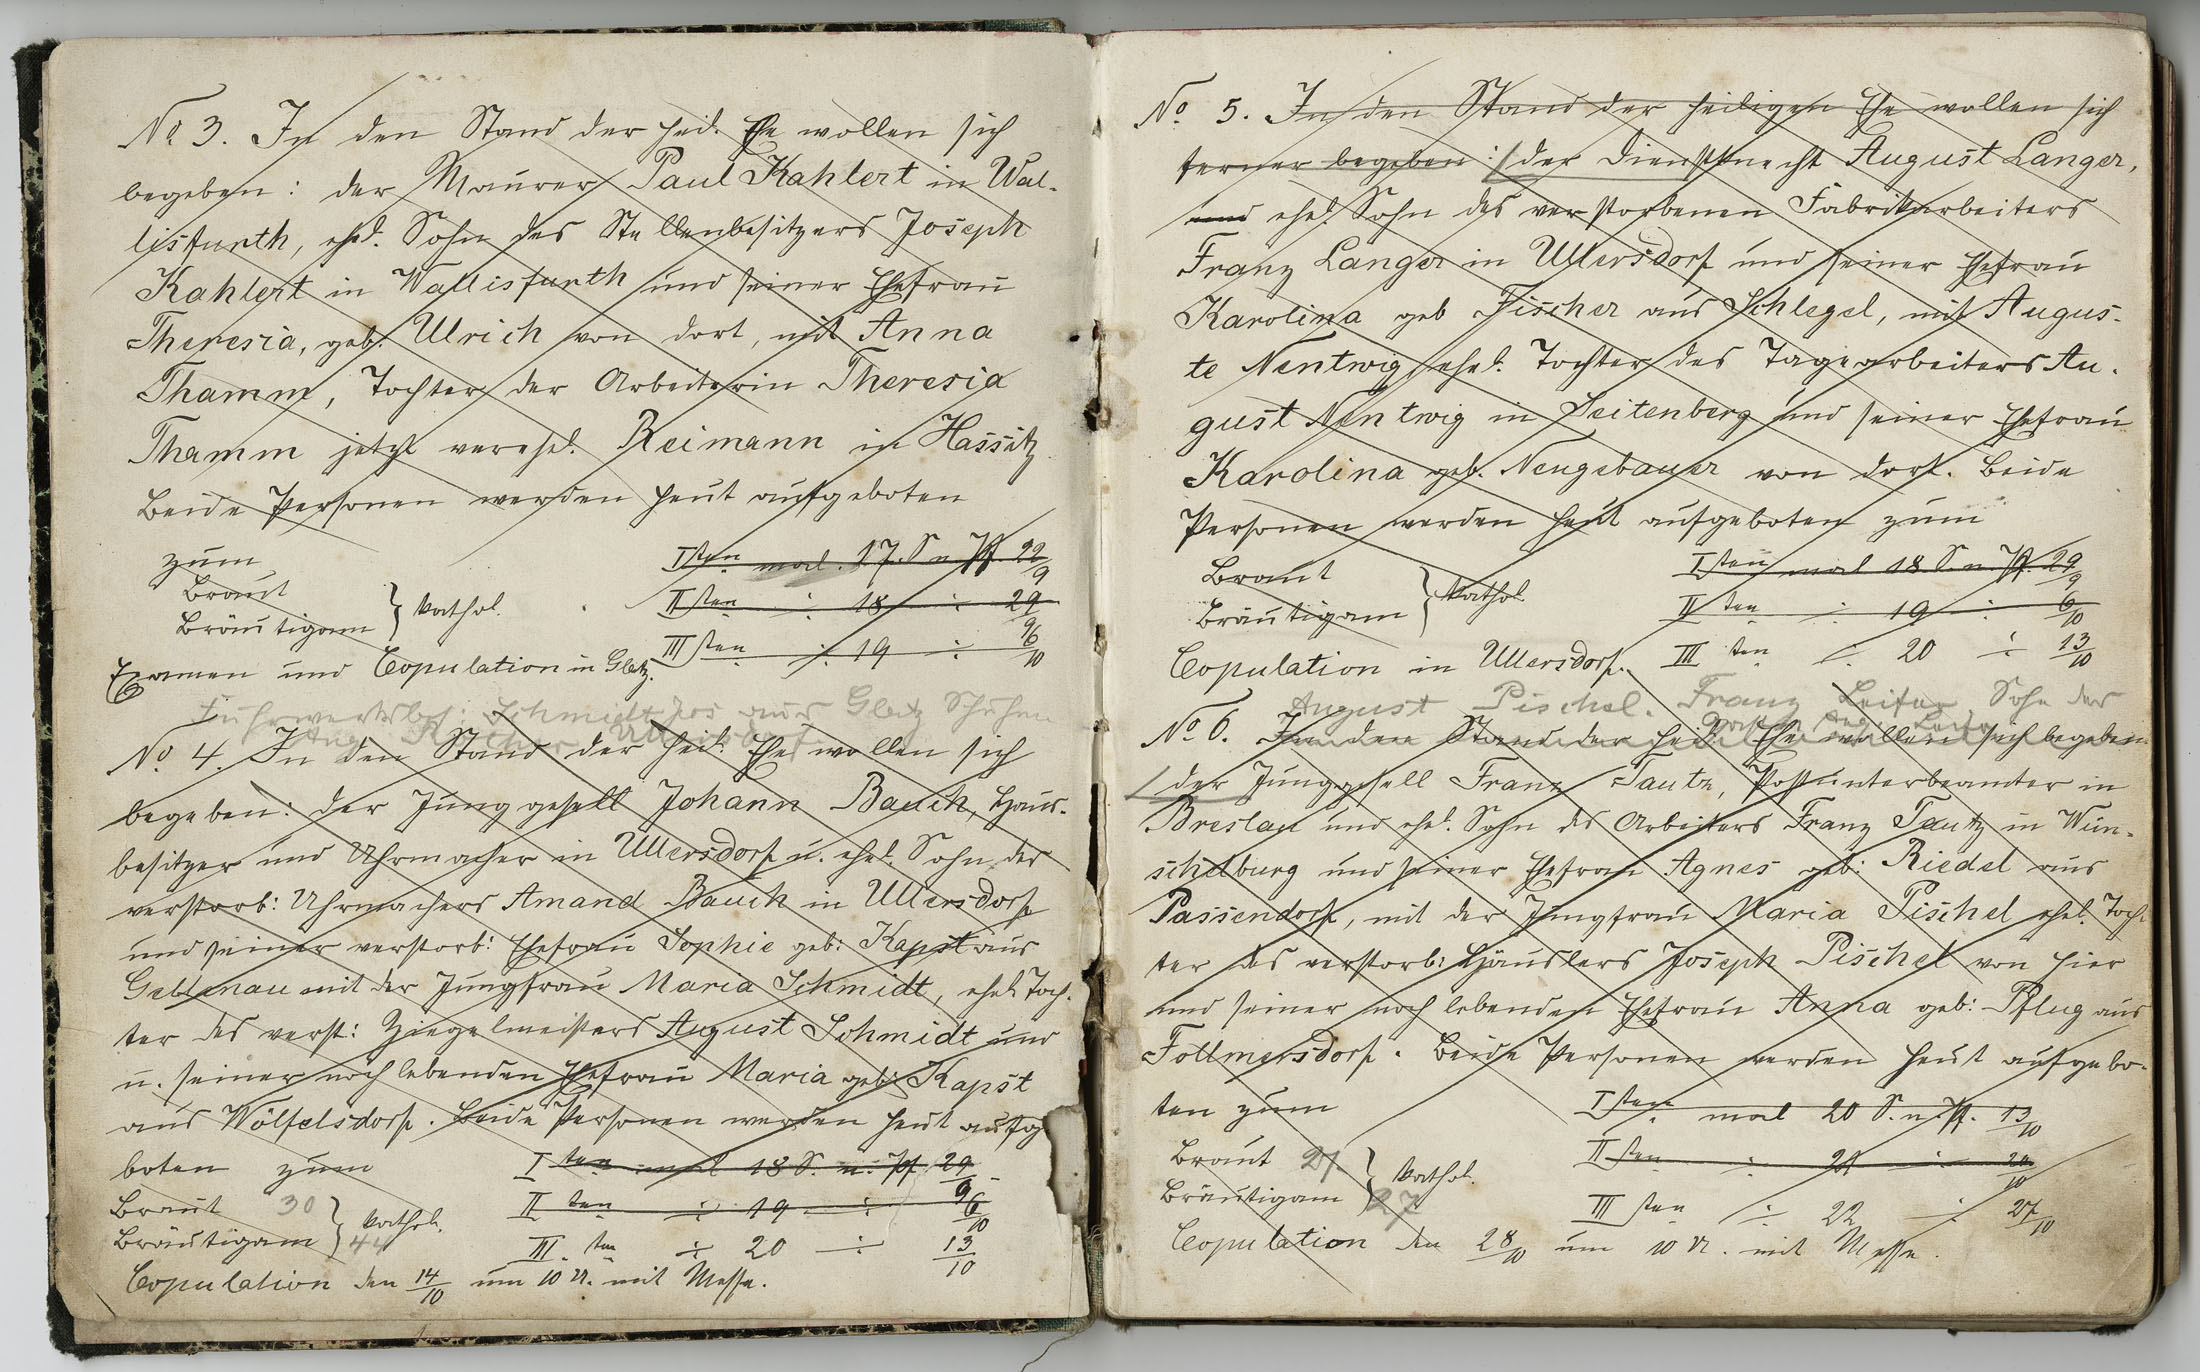 No 3. In den Stand der heil. Ehe wollen sich
begeben: der Maurer Paul Kahlert in Wal-
lisfurth, ehel. Sohn des Stellenbesitzers Joseph
Kahlert in Wallisfurth und seiner Ehefrau
Theresia, geb. Ulrich von dort, mit Anna
Thamm, Tochter der Arbeiterin Theresia
Thamm jetzt verehel. Reimann in Hassitz
Beide Personen werden heut aufgeboten
zum Isten mal. 17. S. n. Pf. 22/9
Braut
Bräutigam } kathol. IIten ÷ 18 ÷ 29/9
Examen und Copulation in Glatz. IIIten ÷ 19 ÷ 6/10
Schmidt Jos aus Glatz
No 4. In den Stand der heil. Ehe wollen sich
begeben: der Junggesell Johann Bauch, Haus-
besitzer und Uhrmacher in Ullersdorf u. ehel. Sohn des
verstorb: Uhrmachers Amand Bauch in Ullersdorf
und seiner verstorb: Ehefrau Sophie geb: Kapst aus
Gellenau mit der Jungfrau Maria Schmidt, ehel. Toch-
ter des verst: Ziegelmeisters August Schmidt und
u. seiner noch lebenden Ehefrau Maria geb: Kapst
aus Wölfelsdorf. Beide Personen werden heut aufge
boten zum I ten mal 18 S. n. Pf. 29/9
Braut 30 II ten ÷ 19 ÷ 6/10
Bräutigam 44 } kathol. III. ten ÷ 20 ÷ 13/10
Copulation den 14/10 um 10 U. mit Messe.
No 5. In den Stand der heiligen Ehe wollen sich
ferner begeben: der Dienstknecht August Langer,
und ehel. Sohn des verstorbenen Fabrikarbeiters
Franz Langer in Ullersdorf und seiner Ehefrau
Karolina geb Fischer aus Schlegel, mit Augus-
te Nentwig ehel. Tochter des Tagearbeiters Au-
gust Nentwig in Seitenberg und seiner Ehefrau
Karolina geb. Neugebauer von dort. Beide
Personen werden heut aufgeboten zum
Braut Isten mal 18 S. n. Pf. 29/9
Bräutigam } kathol. II ten ÷ 19 ÷ 6/10
Copulation in Ullersdorf. III ten ÷ 20 ÷ 13/10
August Pischel. Franz Sohn des
No 6. In den Stand der heil. Ehe wollen sich begeben
der Junggesell Franz Tautz, Postunterbeamter in
Breslau und ehel. Sohn des Arbeiters Franz Tautz in Wün-
schelburg und seiner Ehefrau Agnes geb: Riedel aus
Passendorf, mit der Jungfrau Maria Pischel ehel. Toch
ter des verstorb: Häuslers Joseph Pischel von hier
und seiner noch lebenden Ehefrau Anna geb: Pflug aus
Follmersdorf. Beide Personen werden heut aufgebo-
ten zum Isten mal 20 S. n. Pf. 13/10
Braut 27 IIsten ÷ 21 ÷ 20/10
Bräutigam 27 } kathol. III sten ÷ 22 ÷ 27/10
Copulation den 28/10 um 10 U. mit Messe.